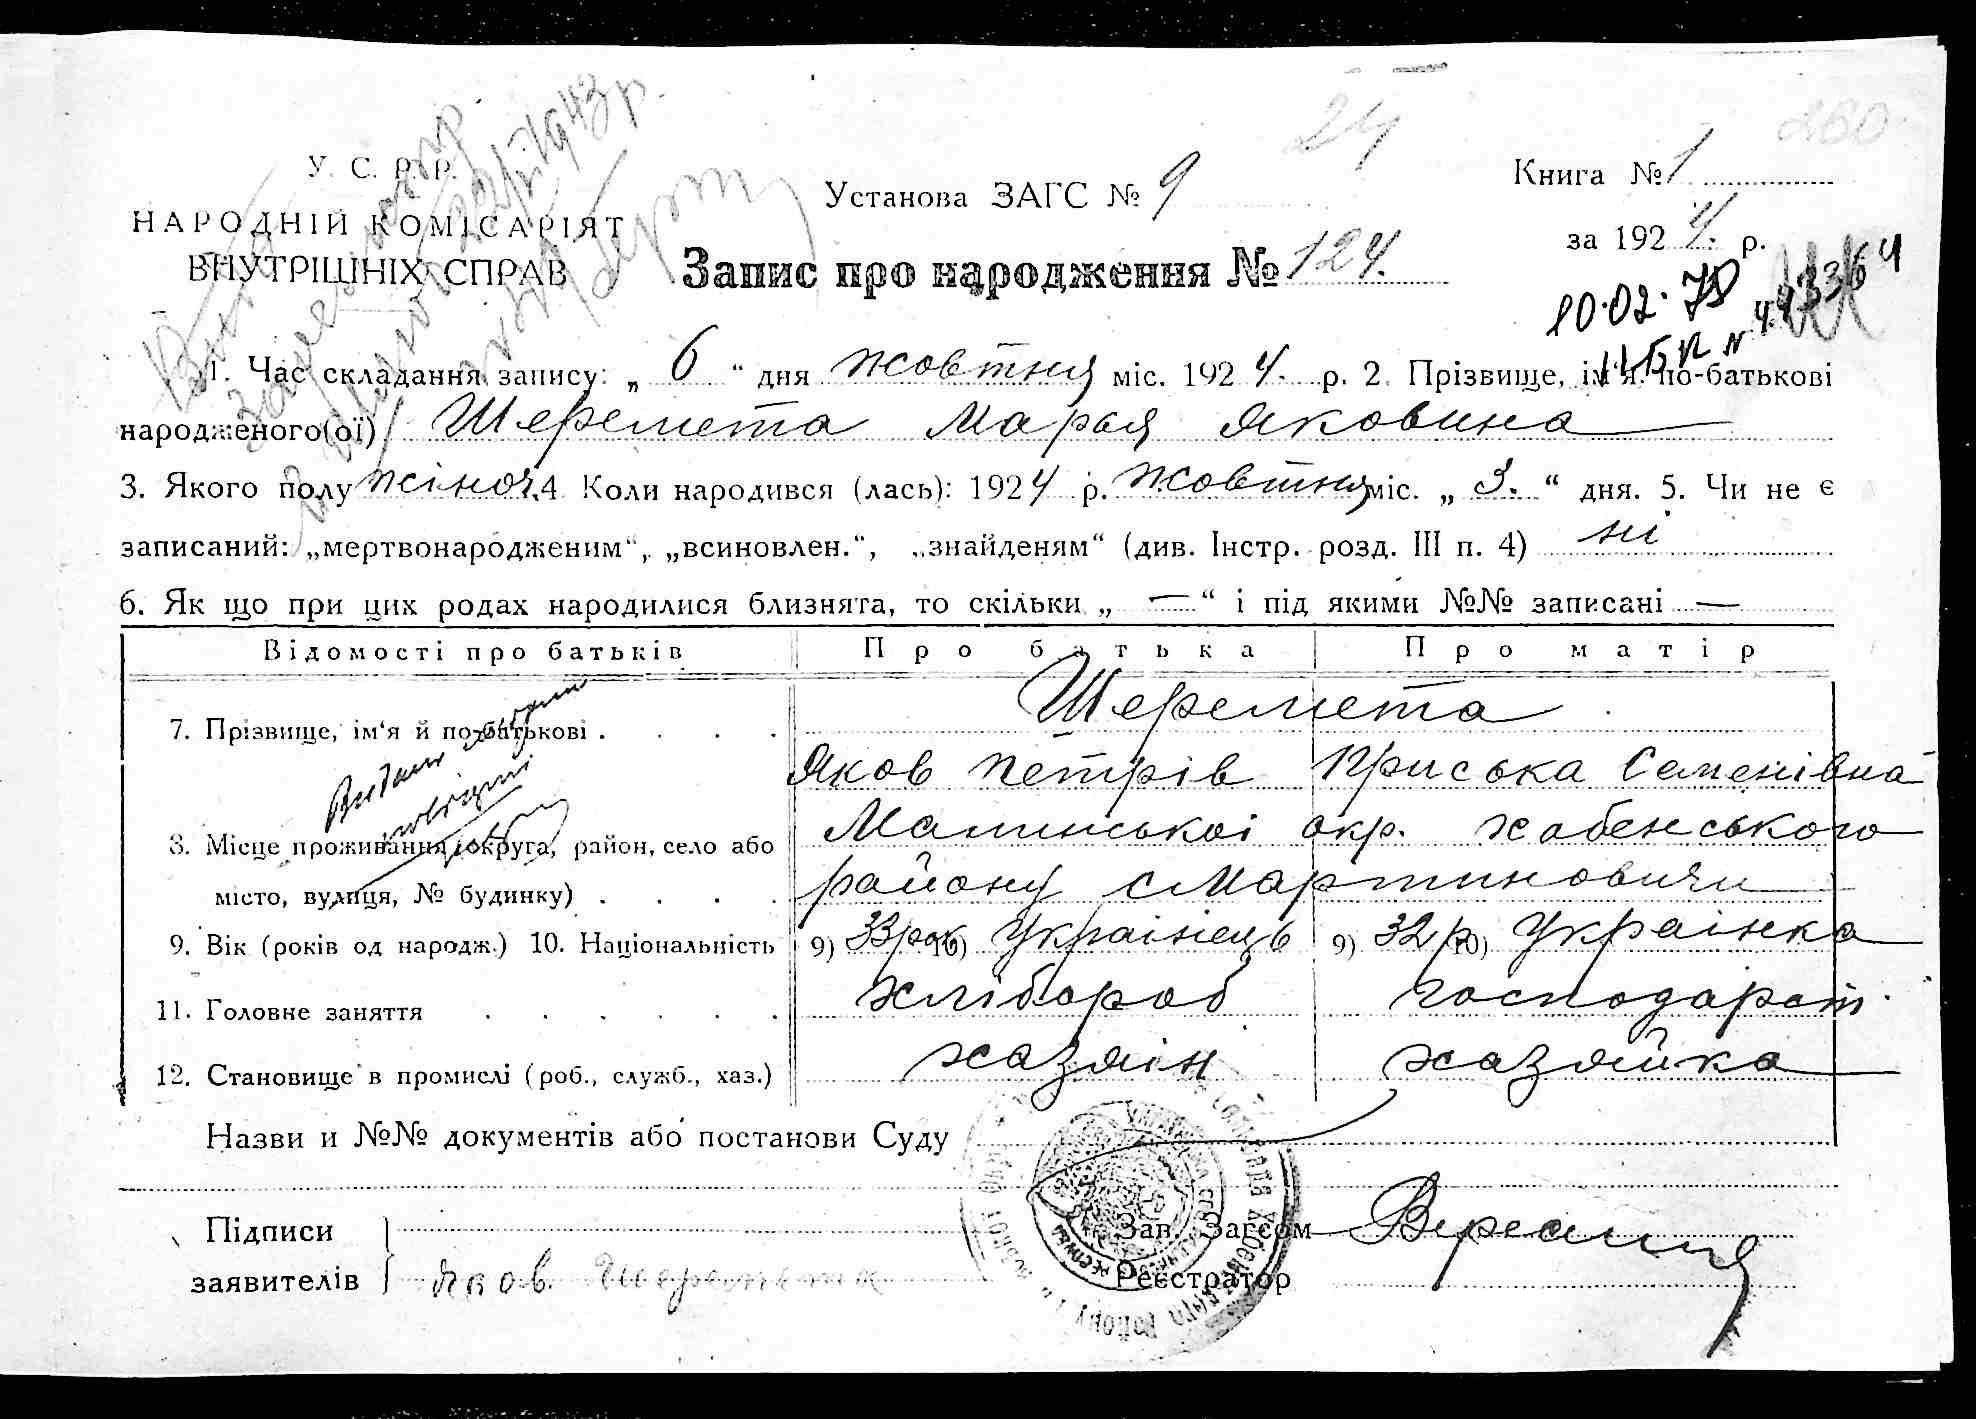 24
260
У. С. Р. Р.
НАРОДНІЙ КОМІСАРІЯТ
ВНУТРІШНІХ СПРАВ
Установа ЗАГС № 9
Книга № 1
за 1924. р.
Запис про народження № 124.
10.02.78
11БП N 443364
1. Час складання запису: „ 6 “ дня жовтня міс. 1924. р. 2. Прізвище, ім'я по-батькові
народженого(ої) Шеремета Марья Яковина
3. Якого полу жіноч. 4 Коли народився (лась): 1924 р. Жовтня міс. „ 3. “ дня. 5. Чи не є
записаний: „мертвонародженим“, „всиновлен.“, „знайденям“ (див. Інстр. розд. III п. 4) ні
6. Як що при цих родах народилися близнята, то скільки „ — “ і під якими №№ записані —
Відомості про батьків Про батька Про матір
Шеремета
7. Прізвище, ім'я й по-батькові . . . .
Яков Петрів Приська Семенівна
Малинськоі окр. Хабенського
8. Місце проживання (округа, район, село або
місто, вулиця, № будинку) . . . .
району с Мартиновичи
9. Вік (років од народж.) 10. Національність 9) 33 рок 10) Українець 9) 32 р 10) Українка
11. Головне заняття . . . . . . хлібороб господарст.
12. Становище в промислі (роб., служб., хаз.) хазяін хазяйка
Назви и №№ документів або постанови Суду
Підписи
заявителів Яков Шеремета
Зав. Загсом
Реєстратор